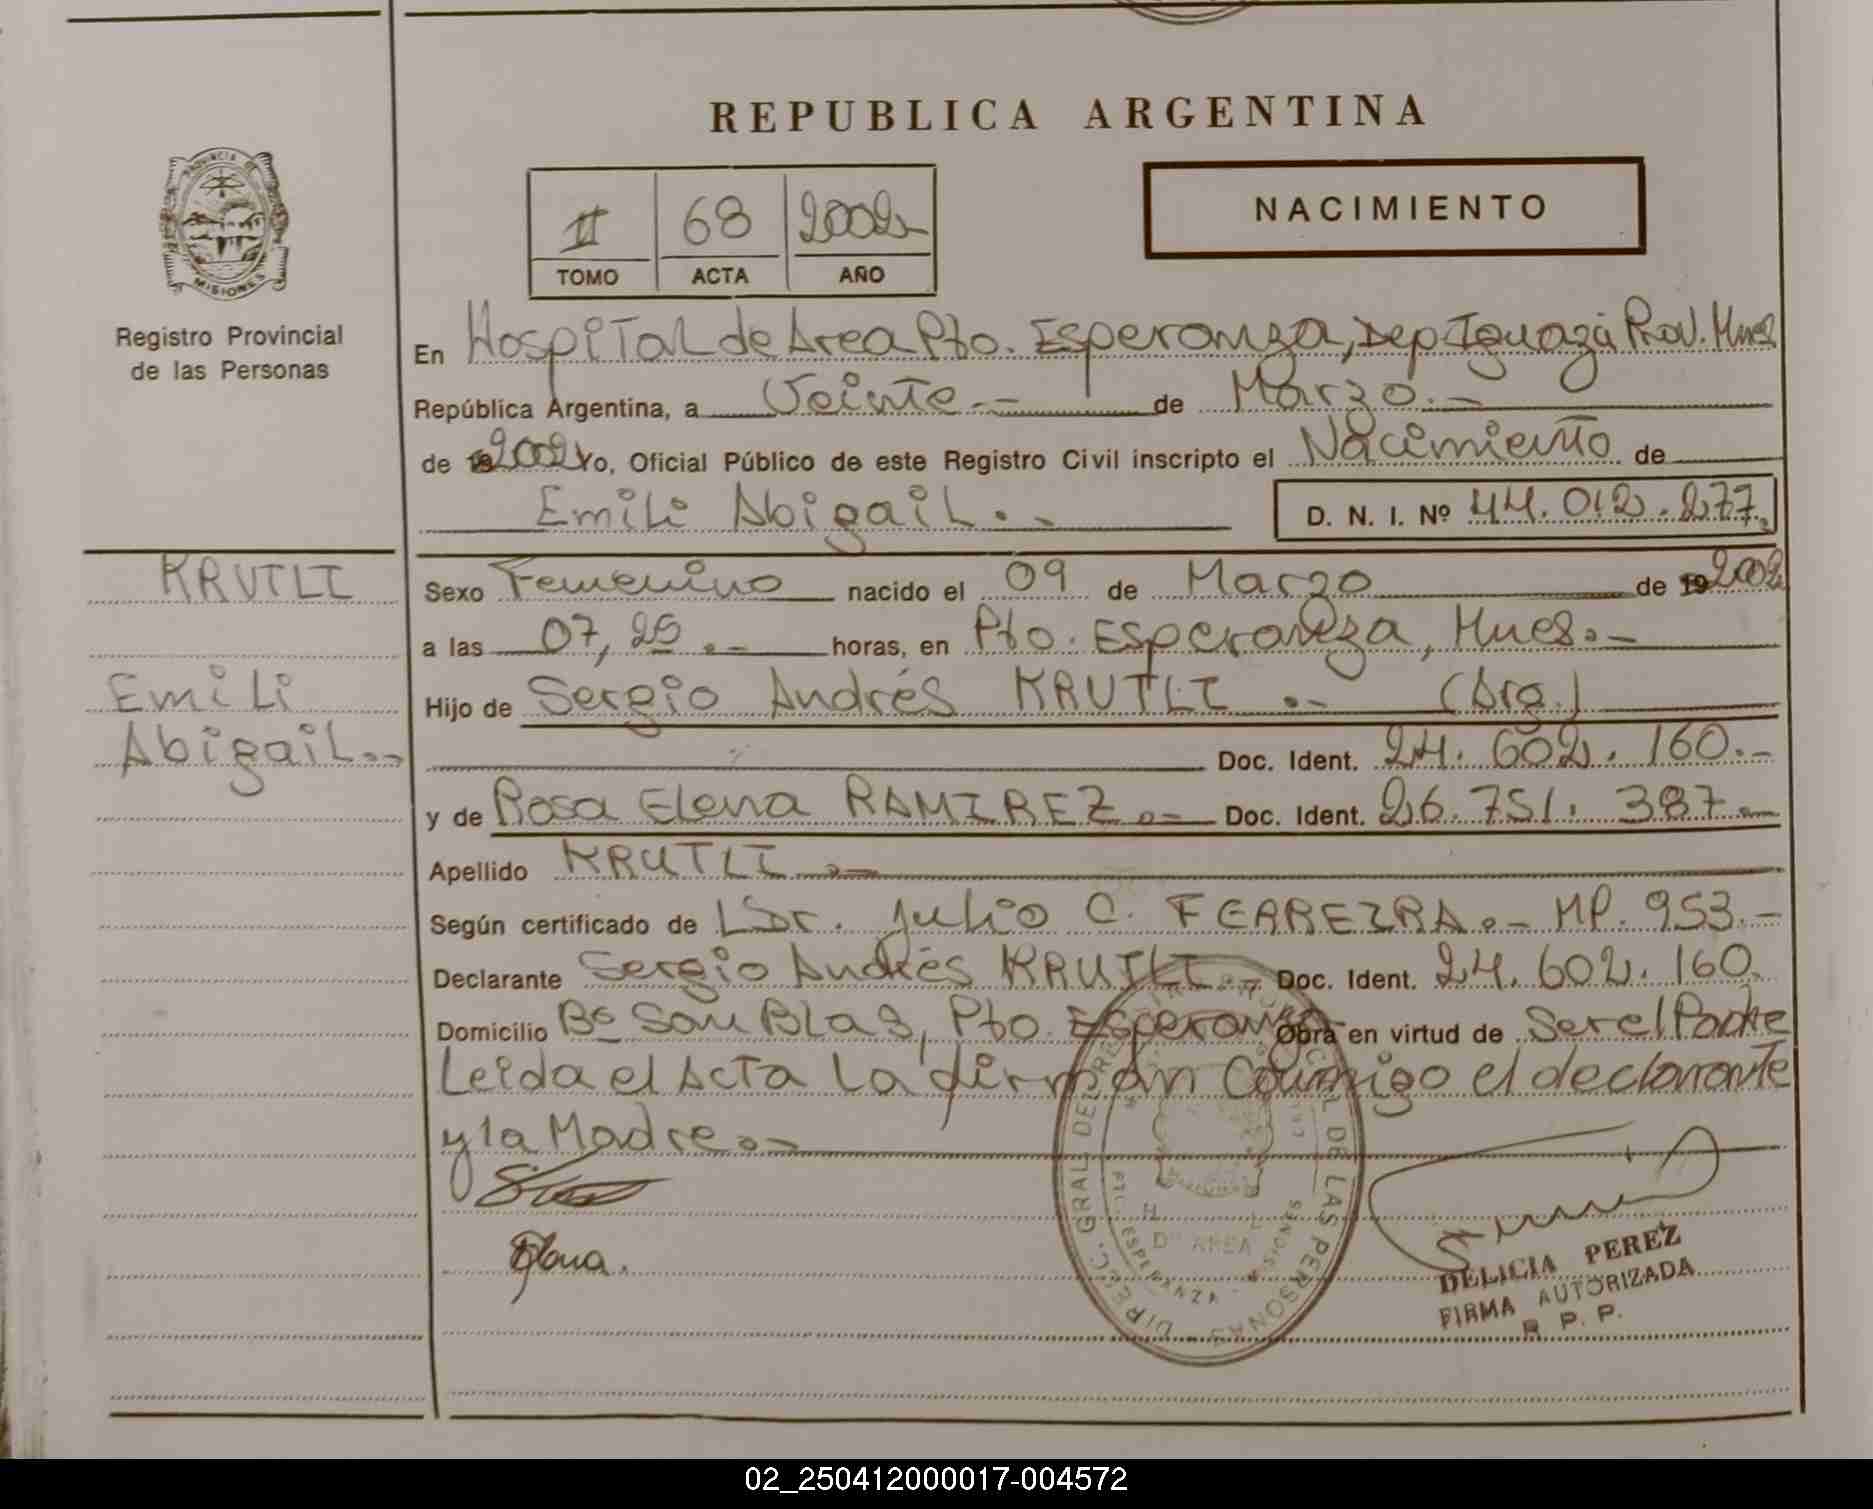 REPUBLICA ARGENTINA
PROVINCIA DE MISIONES
Registro Provincial
de las Personas
II 68 2002
TOMO ACTA AÑO
NACIMIENTO
En Hospital de Area Pto. Esperanza, Dep. Iguazú Prov. Mnes
República Argentina, a Veinte.- de Marzo.-
de 2002 Yo, Oficial Público de este Registro Civil inscripto el Nacimiento de
Emili Abigail.-
D. N. I. Nº 44.012.277.
KRUTLI
Emili
Abigail.-
Sexo Femenino nacido el 09 de Marzo de 19 2002
a las 07,25.- horas, en Pto. Esperanza, Mnes.-
Hijo de Sergio Andrés KRUTLI.- (Arg.)
Doc. Ident. 24.602.160.-
y de Rosa Elena RAMIREZ.- Doc. Ident. 26.751.387.-
Apellido KRUTLI.-
Según certificado de Dr. Julio C. FERREIRA.- MP. 953.-
Declarante Sergio Andrés KRUTLI.- Doc. Ident. 24.602.160.
Domicilio Bº San Blas, Pto. Esperanza Obra en virtud de Ser el Padre
Leida el Acta la firman Conmigo el declarante
y la Madre.-
Elena.
DIREC. GRAL. DEL REGISTRO PROVINCIAL DE LAS PERSONAS
Dº AREA
PTO. ESPERANZA - MISIONES
DELICIA PEREZ
FIRMA AUTORIZADA
R. P. P.
02_250412000017-004572